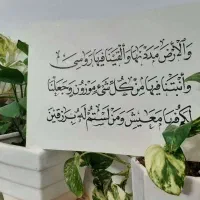 والأرض مددناها وألقينا فيها رواسي
وأنبتنا فيها من كل شيء موزون وجعلنا
لكم فيها معايش ومن لستم له برازقين